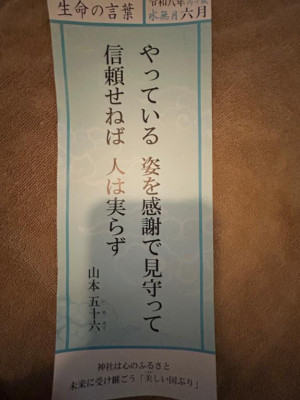 生命の言葉
令和八年
水無月 六月
やっている 姿を感謝で見守って
信頼せねば 人は実らず
山本 五十六
神社は心のふるさと
未来に受け継ごう「美しい国ぶり」